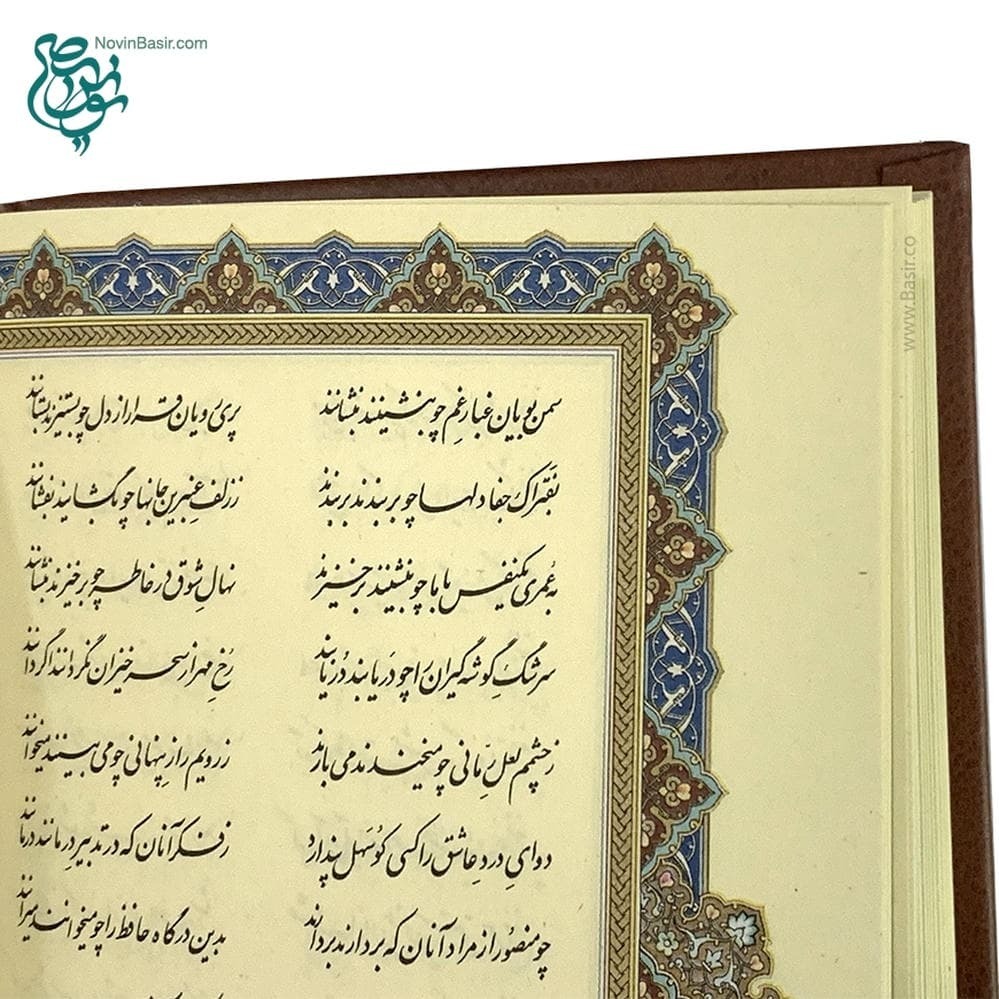 NovinBasir.com
www.Basir.co
سمن بویان غبار غم چو بنشینند بنشانند پری رویان قرار از دل چو بستیزند بستانند
بفتراک جفا دلها چو بربندند بربندند ز زلف عنبرین جانها چو بگشایند بفشانند
به عمری یکنفس با ما چو بنشینند برخیزند نهال شوق در خاطر چو برخیزند بنشانند
سرشک گوشه گیران را چو دریابند دُر یابند رخ مهر از سحر خیزان نگردانند اگر دانند
ز چشمم لعل رمّانی چو میخندند می بارند ز رویم راز پنهانی چو می بینند میخوانند
دوای درد عاشق را کسی کو سهل پندارد ز فکر آنان که در تدبیر درمانند درمانند
چو منصور از مراد آنان که بردارند بر دارند بدین درگاه حافظ را چو میخوانند میرانند